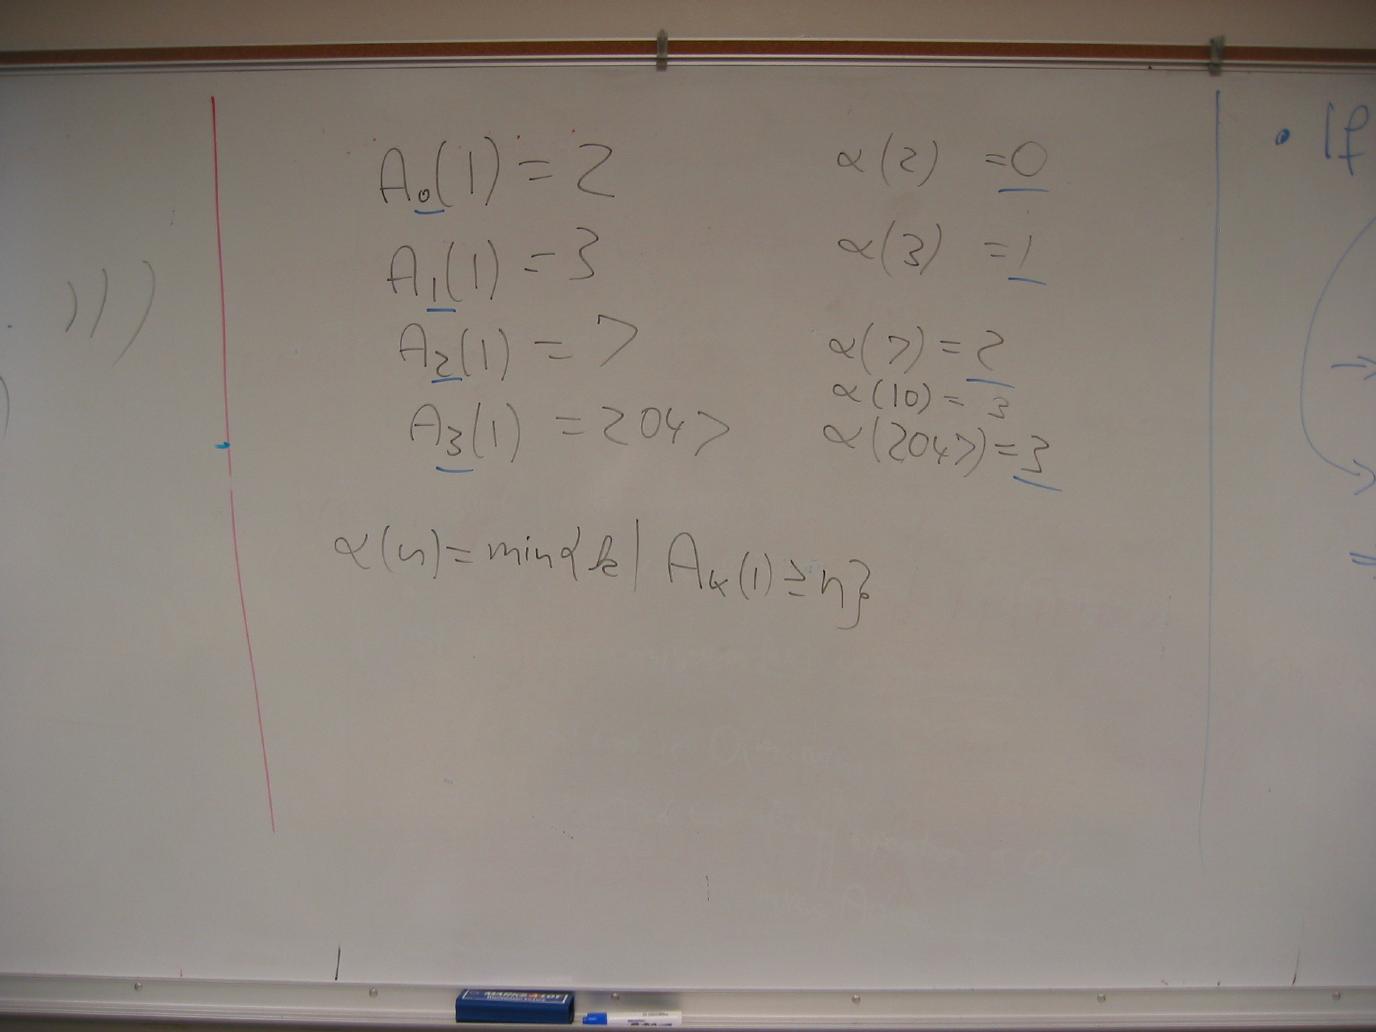 )))
A₀(1) = 2
A₁(1) = 3
A₂(1) = 7
A₃(1) = 2047
α(2) = 0
α(3) = 1
α(7) = 2
α(10) = 3
α(2047) = 3
α(n) = min{k | Aₖ(1) ≥ n}
• If
MARKS-A-LOT